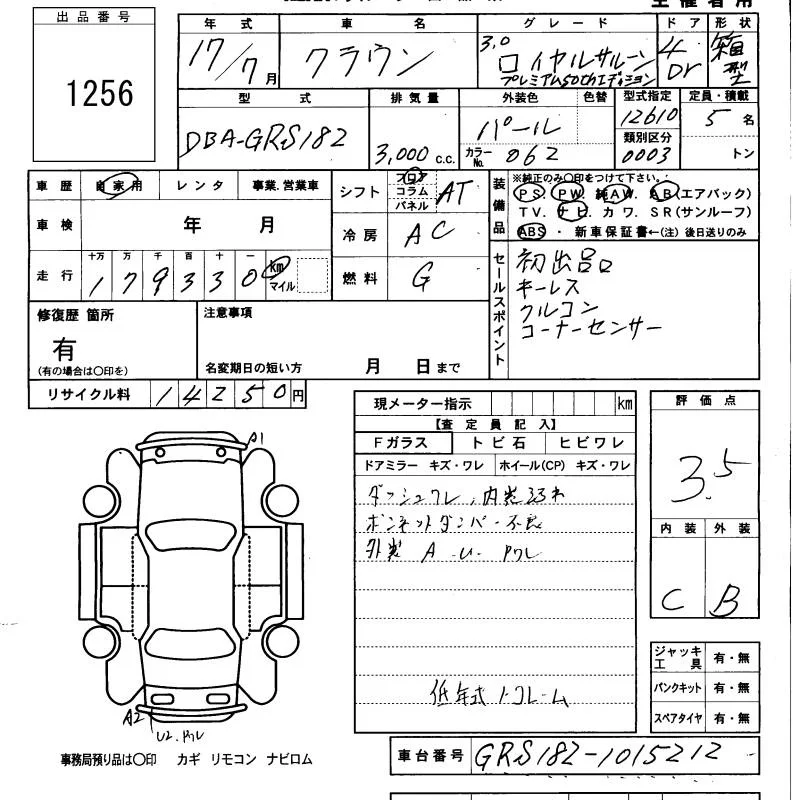 出品番号
1256
年式 車名 グレード ドア 形状
17/7月 クラウン 3.0 ロイヤルサルーン プレミアム50thエディション 4Dr 箱型
型式 排気量 外装色 色替 型式指定 定員・積載
DBA-GRS182 3,000c.c. パール 12610 5名
カラーNo. 062 類別区分 0003 トン
車歴 自家用 レンタ 事業.営業車
シフト フロア コラム パネル AT
車検 年 月
冷房 AC
走行 十万 万 千 百 十 一
179330 km マイル
燃料 G
装備品
※純正のみ〇印をつけて下さい。
PS. PW. 純AW. AB(エアバック)
TV. ナビ. カワ. SR(サンルーフ)
ABS ・ 新車保証書←(注) 後日送りのみ
セールスポイント
初出品
キーレス
クルコン
コーナーセンサー
修復歴 箇所
有
(有の場合は〇印を)
注意事項
名変期日の短い方 月 日まで
リサイクル料 14250円
現メーター指示 km
【査定員記入】
Fガラス トビ石 ヒビワレ
ドアミラー キズ・ワレ ホイール(CP) キズ・ワレ
ダッシュワレ、内装
ボンネットダンパー不良
外装 A U Pワレ
低年式
評価点
3.5
内装 外装
C B
ジャッキ工具 有・無
パンクキット 有・無
スペアタイヤ 有・無
A1
A2
U2.Pワレ
事務局預り品は〇印 カギ リモコン ナビロム
車台番号 GRS182-1015212